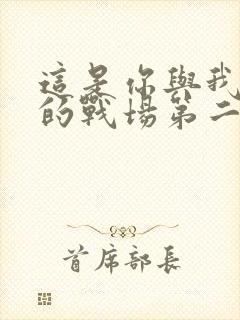 這是你與我
的戰場第二
首席部長